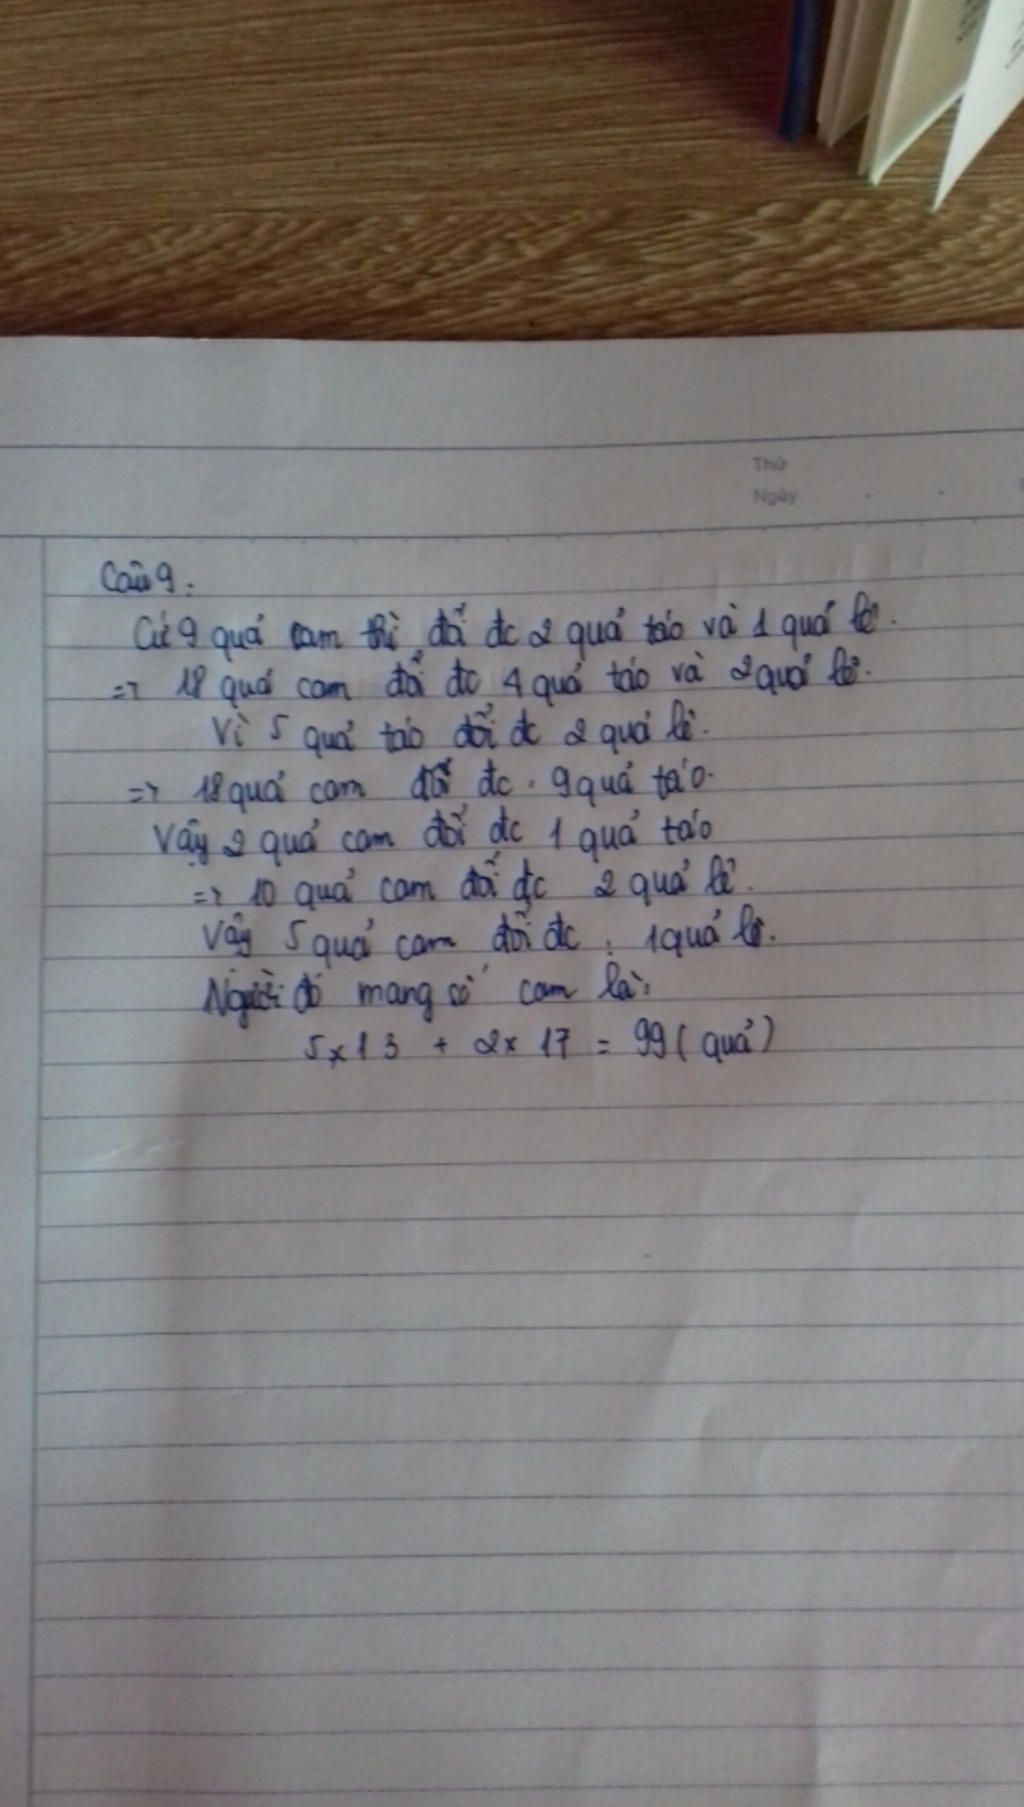 Thứ
Ngày
Câu 9:
Cứ 9 quả cam thì đổi đc 2 quả táo và 1 quả lê.
=> 18 quả cam đổi đc 4 quả táo và 2 quả lê.
Vì 5 quả táo đổi đc 2 quả lê.
=> 18 quả cam đổi đc. 9 quả táo.
Vậy 2 quả cam đổi đc 1 quả táo
=> 10 quả cam đổi đc 2 quả lê.
Vậy 5 quả cam đổi đc: 1 quả lê.
Người đó mang số cam là:
5 x 13 + 2 x 17 = 99 (quả)